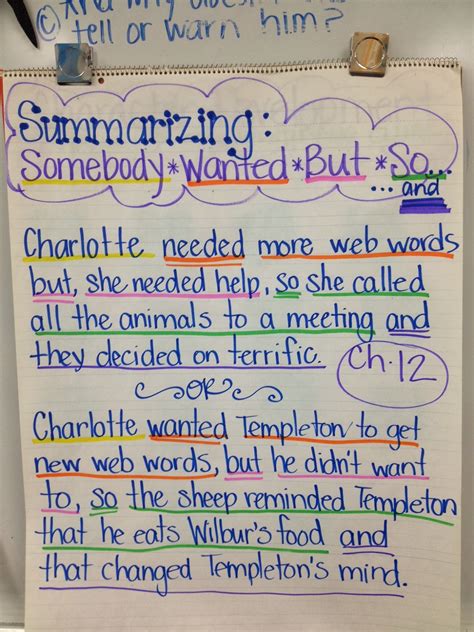 © And why doesn't
tell or warn him?
Summarizing:
Somebody*Wanted*But*So...
...and
Charlotte needed more web words
but, she needed help, so she called
all the animals to a meeting and
they decided on terrific.
Ch. 12
OR
Charlotte wanted Templeton to get
new web words, but he didn't want
to, so the sheep reminded Templeton
that he eats Wilbur's food and
that changed Templeton's mind.